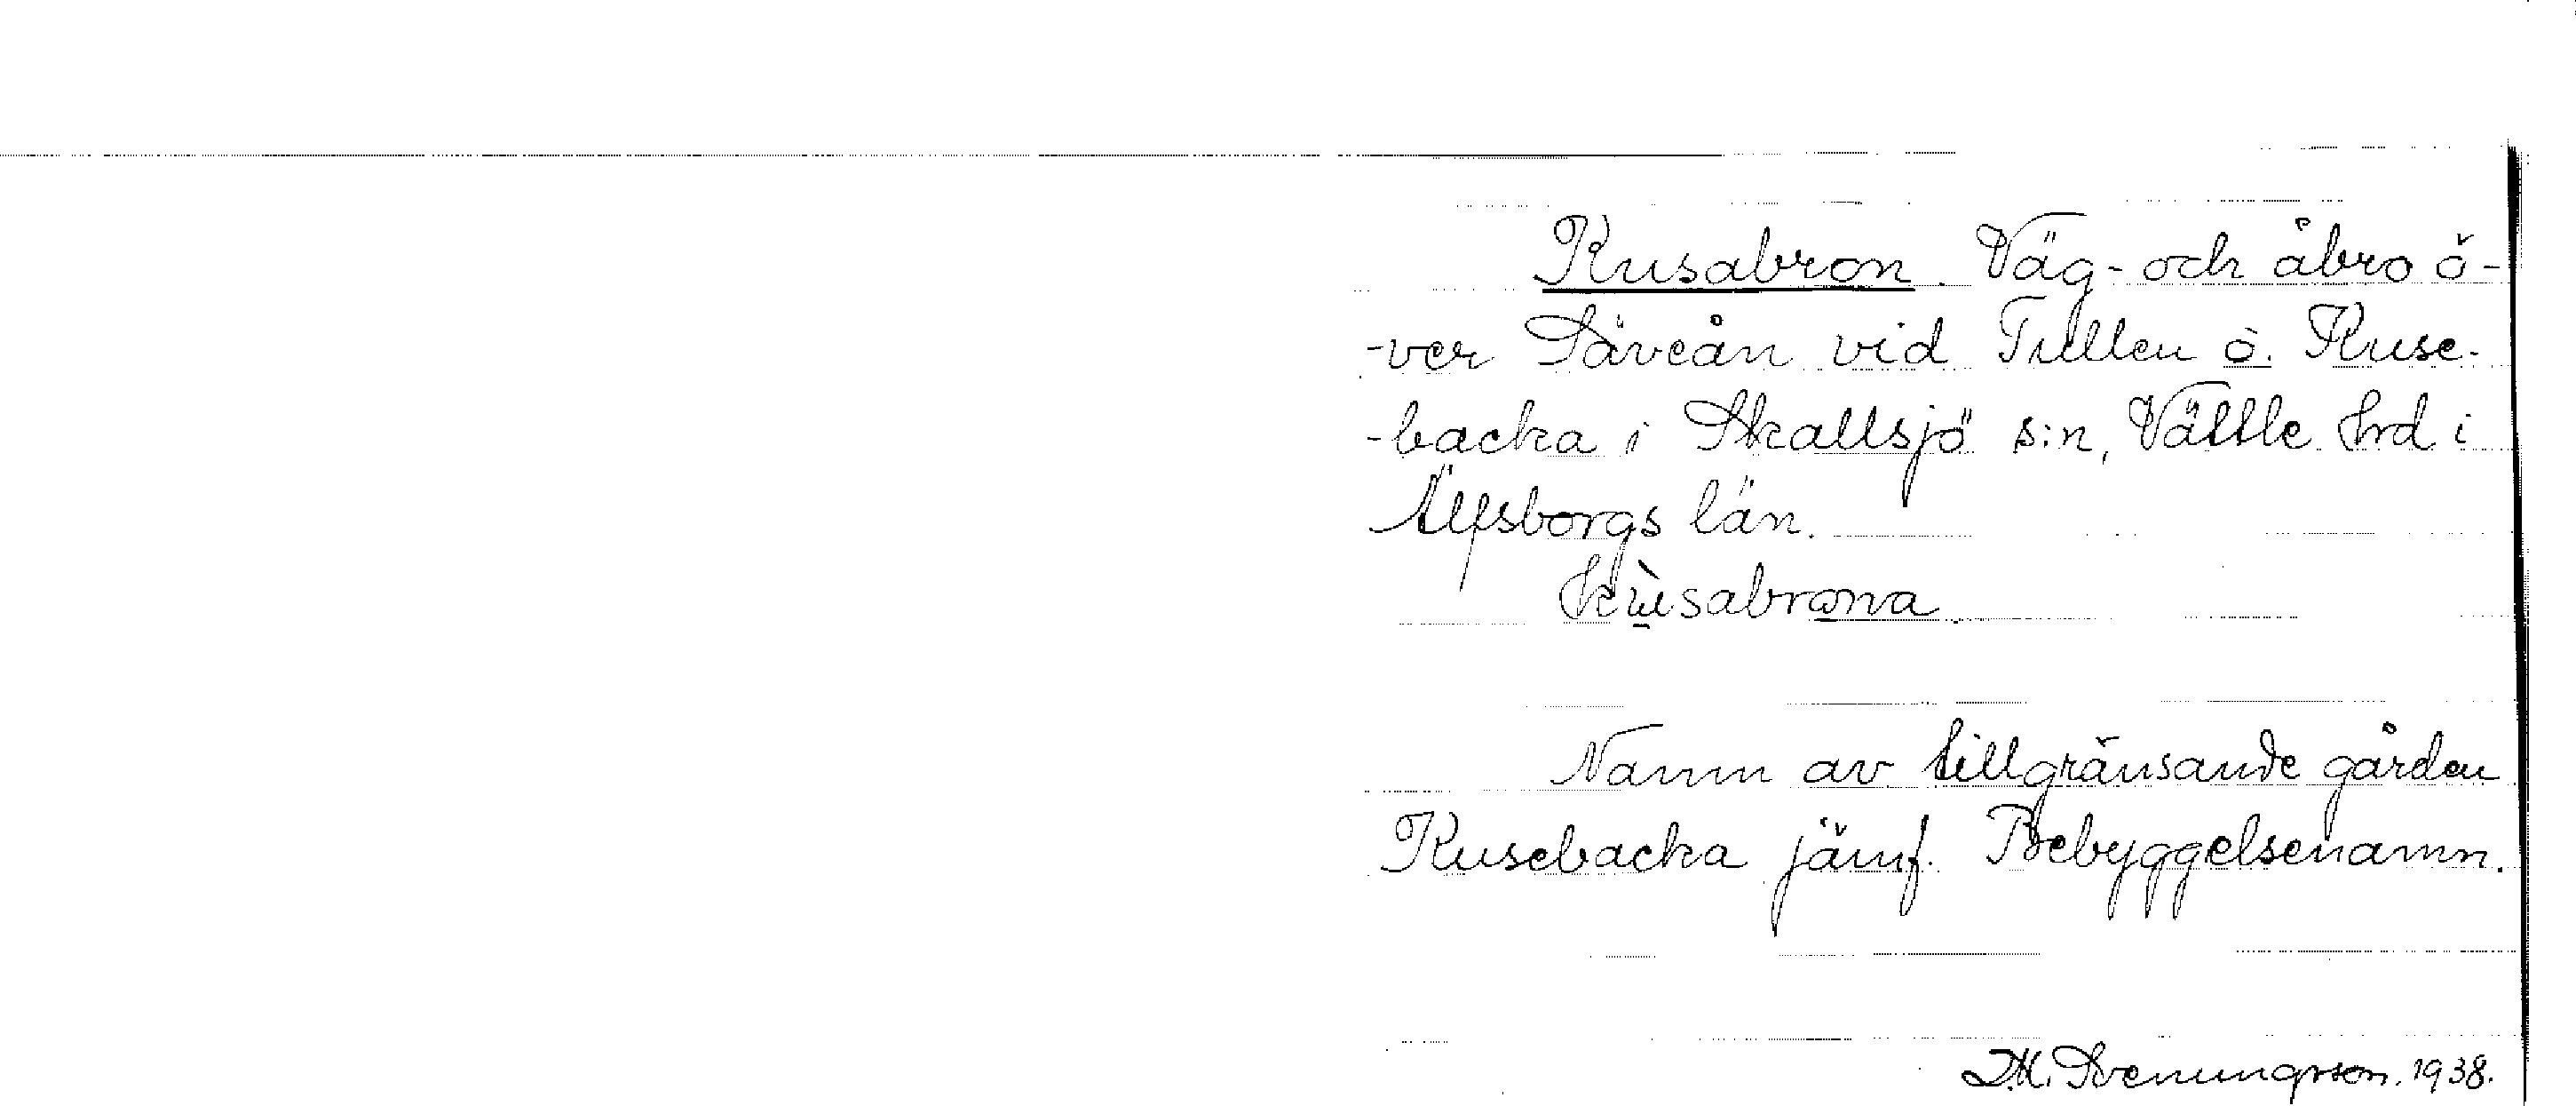 Kusabron. Väg- och åbro ö-
-ver Säveån vid Tullen ö. Kuse-
-backa i Skallsjö s:n, Vättle Hrd i
Älfsborgs län.
kùsabrona
Namn av tillgränsande gården
Kusebacka jämf. Bebyggelsenamn.
D.H. Svenungsson. 1938.